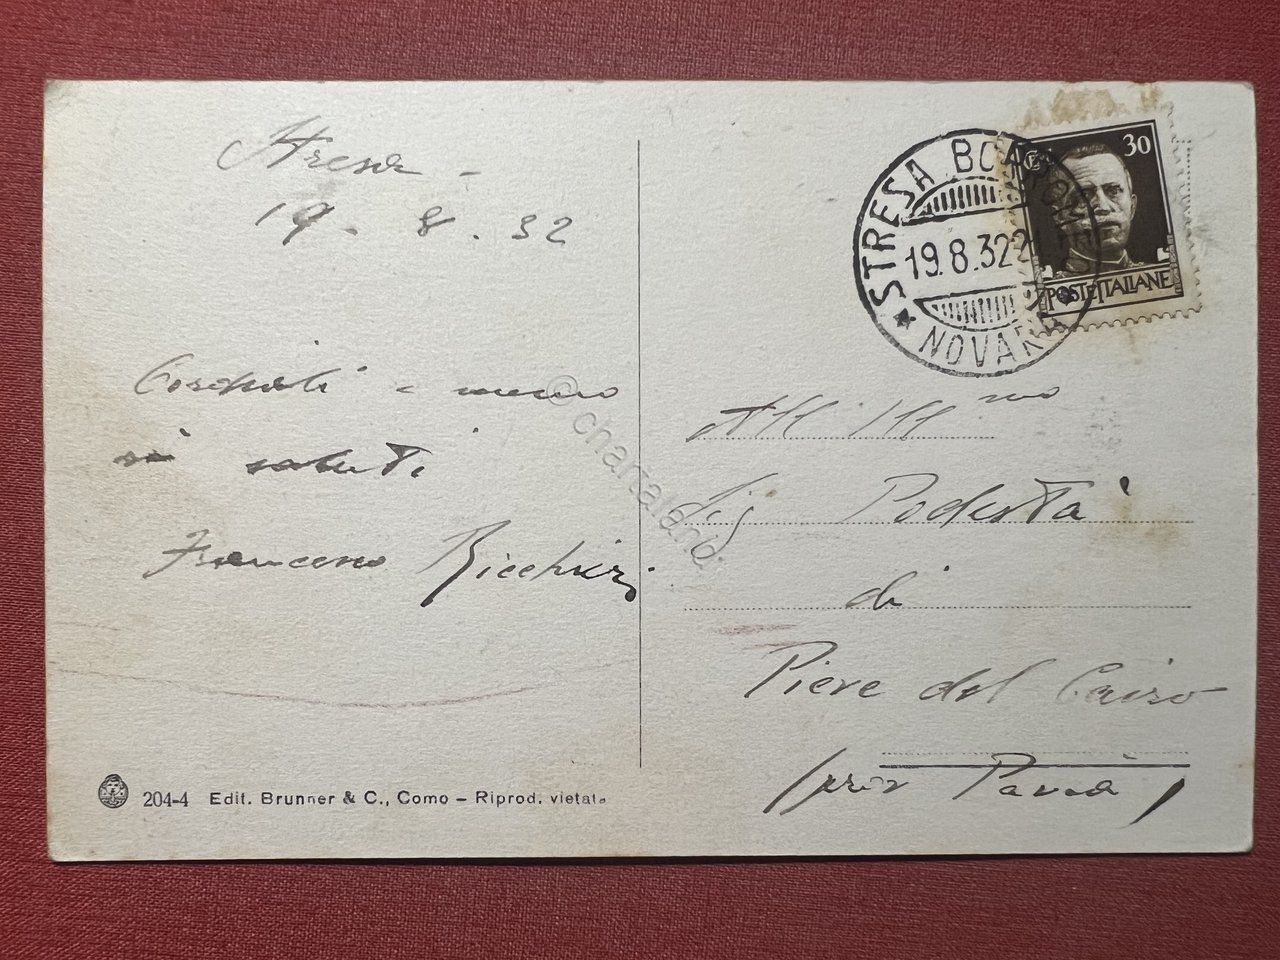 Stresa -
19 . 8 . 32
Cordiali e
saluti
Francesco
204-4 Edit. Brunner & C., Como - Riprod. vietata
STRESA
19.8.32
NOVARA
30
POSTE ITALIANE
© chartaland
All'Ill.mo
Sig Podestà
di
Pieve del Cairo
Pavia